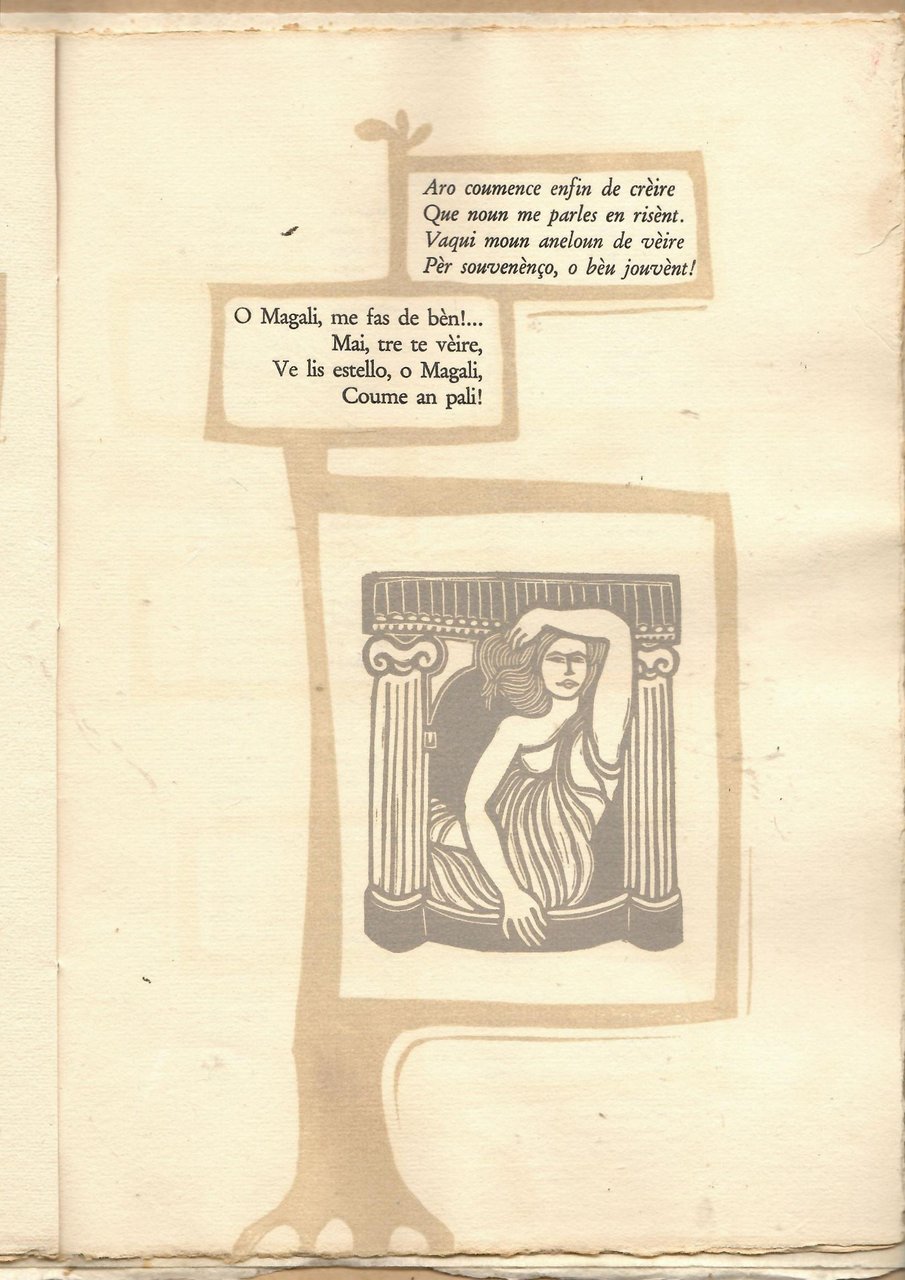 Aro coumence enfin de crèire
Que noun me parles en risènt.
Vaqui moun aneloun de vèire
Pèr souvenènço, o bèu jouvènt!
O Magali, me fas de bèn!...
Mai, tre te vèire,
Ve lis estello, o Magali,
Coume an pali!